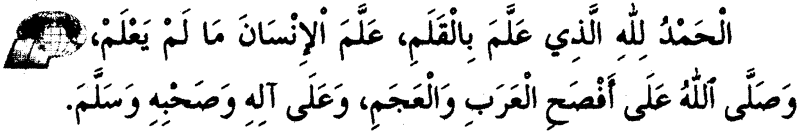 الْحَمْدُ لِلهِ الَّذِي عَلَّمَ بِالْقَلَمِ، عَلَّمَ الْإِنْسَانَ مَا لَمْ يَعْلَمْ،
وَصَلَّى اللهُ عَلَى أَفْصَحِ الْعَرَبِ وَالْعَجَمِ، وَعَلَى آلِهِ وَصَحْبِهِ وَسَلَّمَ.